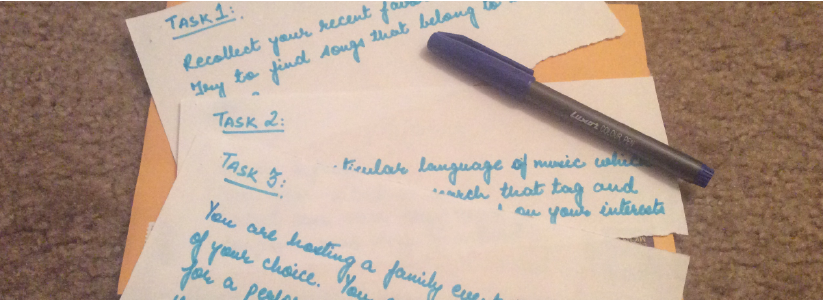 TASK 1:
Recollect your recent
Try to find songs that belong to
TASK 2:
language of music
search that tag and
on your interests
TASK 3:
You are hosting a family
of your choice. You
for a
Luxor